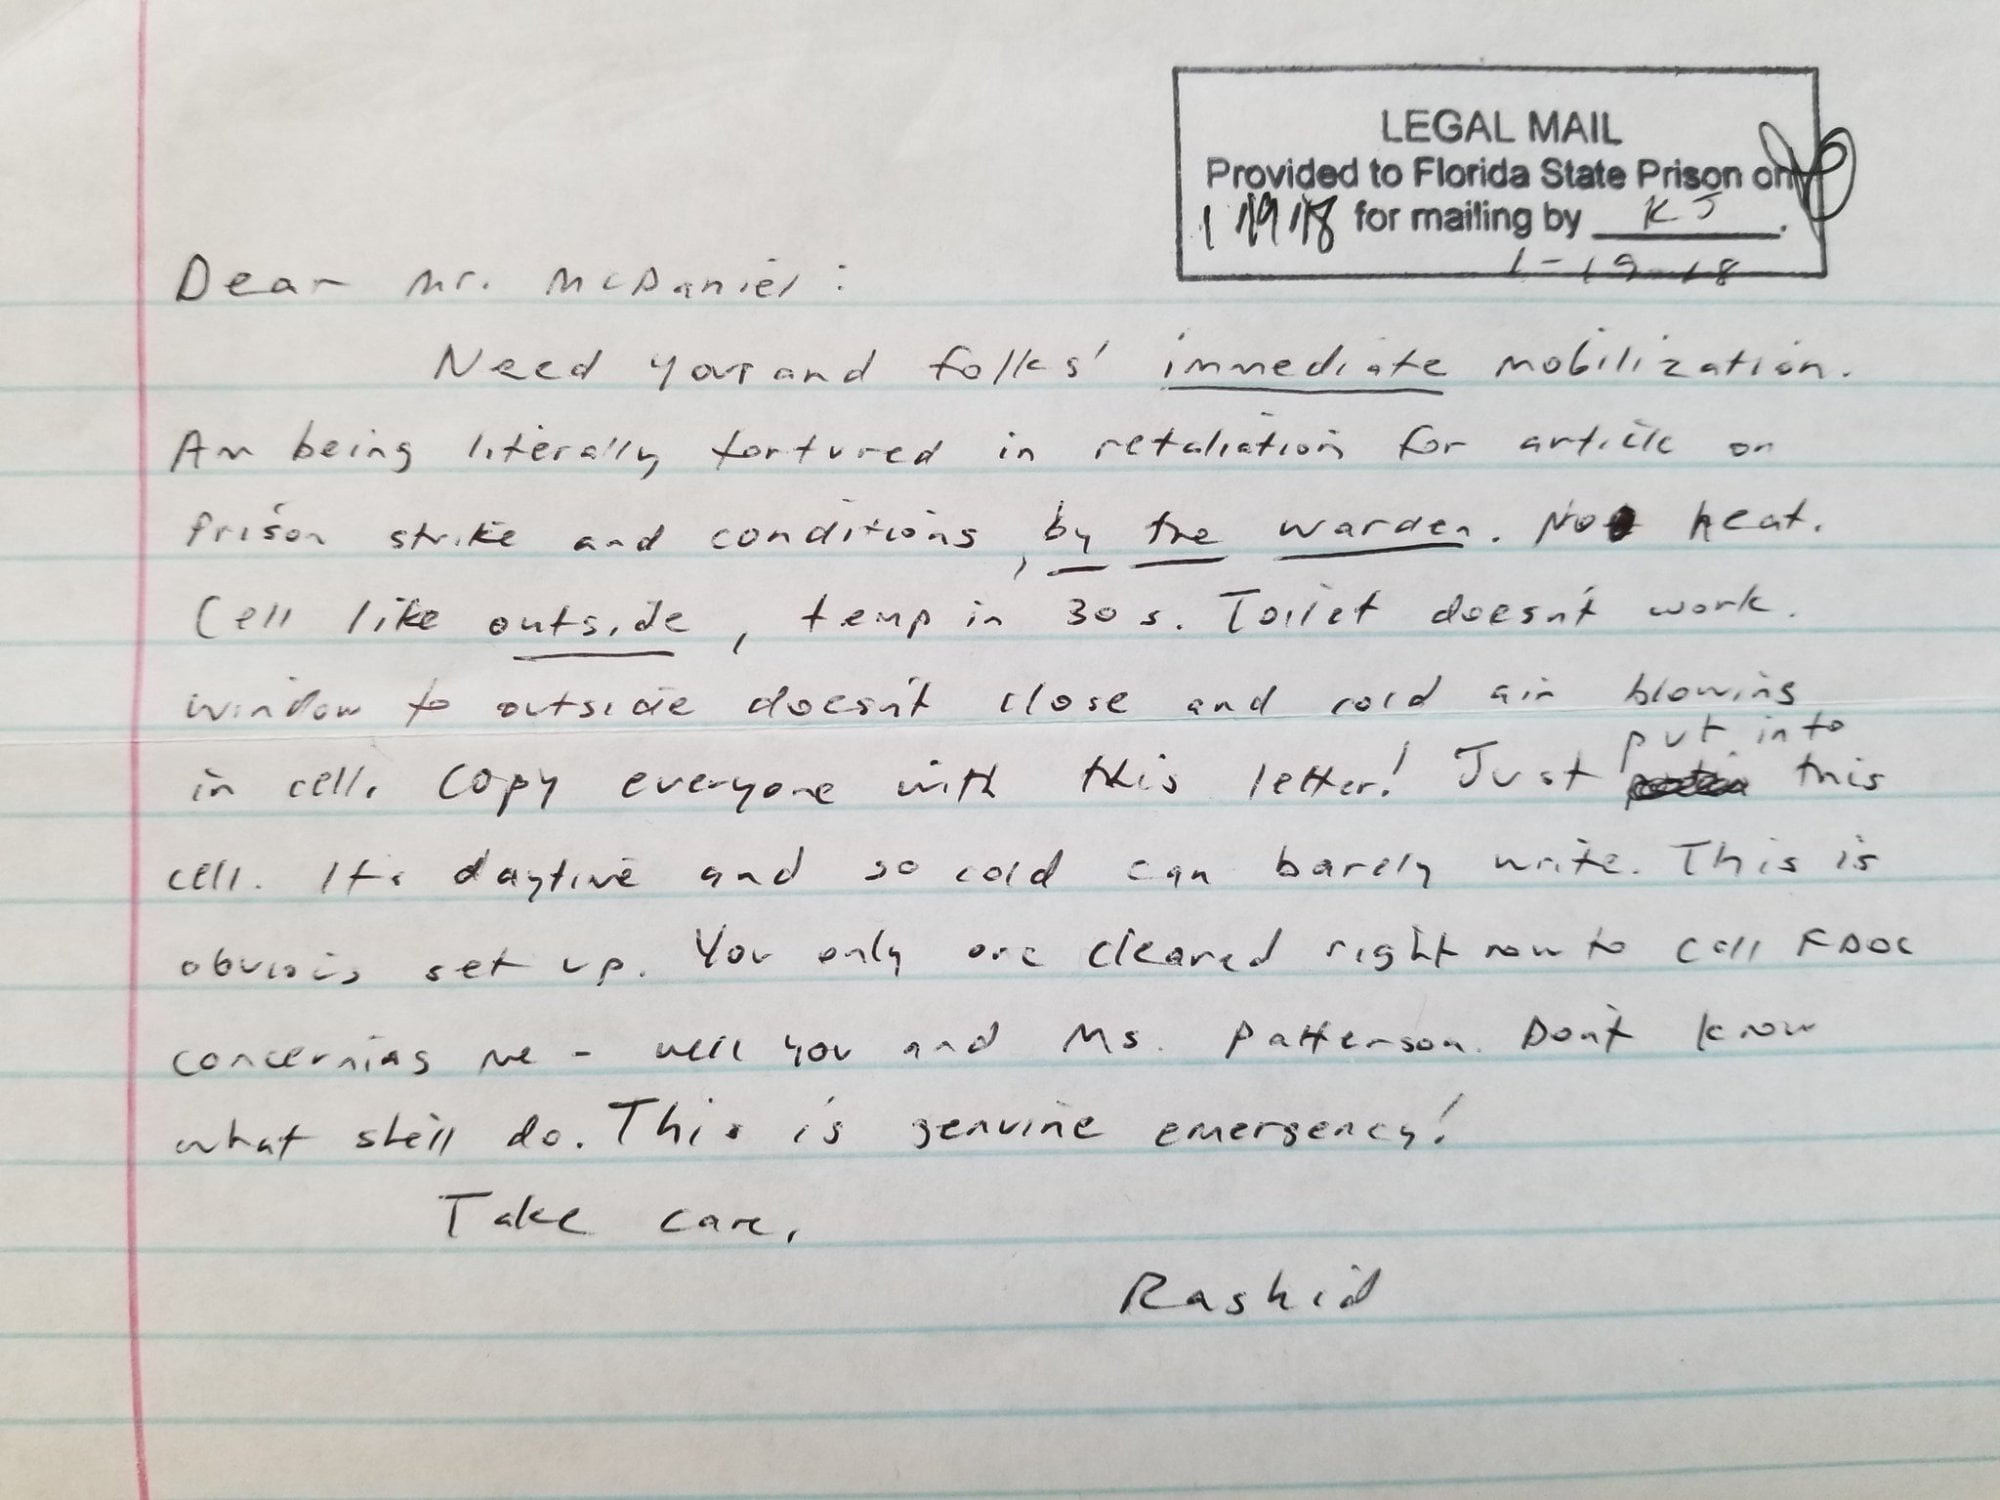 LEGAL MAIL
Provided to Florida State Prison on
1/19/18 for mailing by KJ.
1-19-18
Dear Mr. McDaniel:
Need your and folks' immediate mobilization.
Am being literally tortured in retaliation for article on
prison strike and conditions, by the warden. No heat.
Cell like outside, temp in 30s. Toilet doesn't work.
Window to outside doesn't close and cold air blowing
in cell. Copy everyone with this letter! Just put into this
cell. It's daytime and so cold can barely write. This is
obvious set up. You only one cleared right now to call FDOC
concerning me - well you and Ms. Patterson. Don't know
what she'll do. This is genuine emergency!
Take care,
Rashid